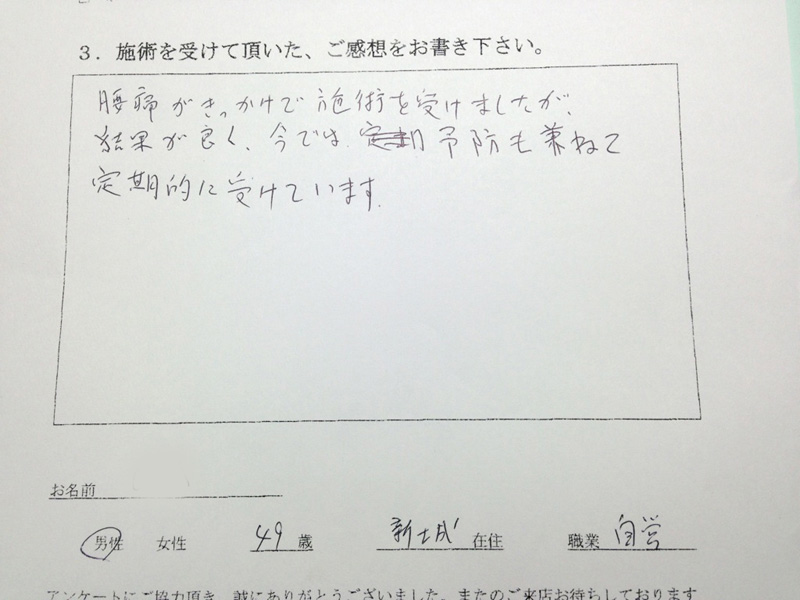 3．施術を受けて頂いた、ご感想をお書き下さい。
腰痛がきっかけで施術を受けましたが、
結果が良く、今では 予防も兼ねて
定期的に受けています。
お名前
男性 女性 49 歳 新城 在住 職業 自営
アンケートにご協力頂き、誠にありがとうございました。またのご来店お待ちしております